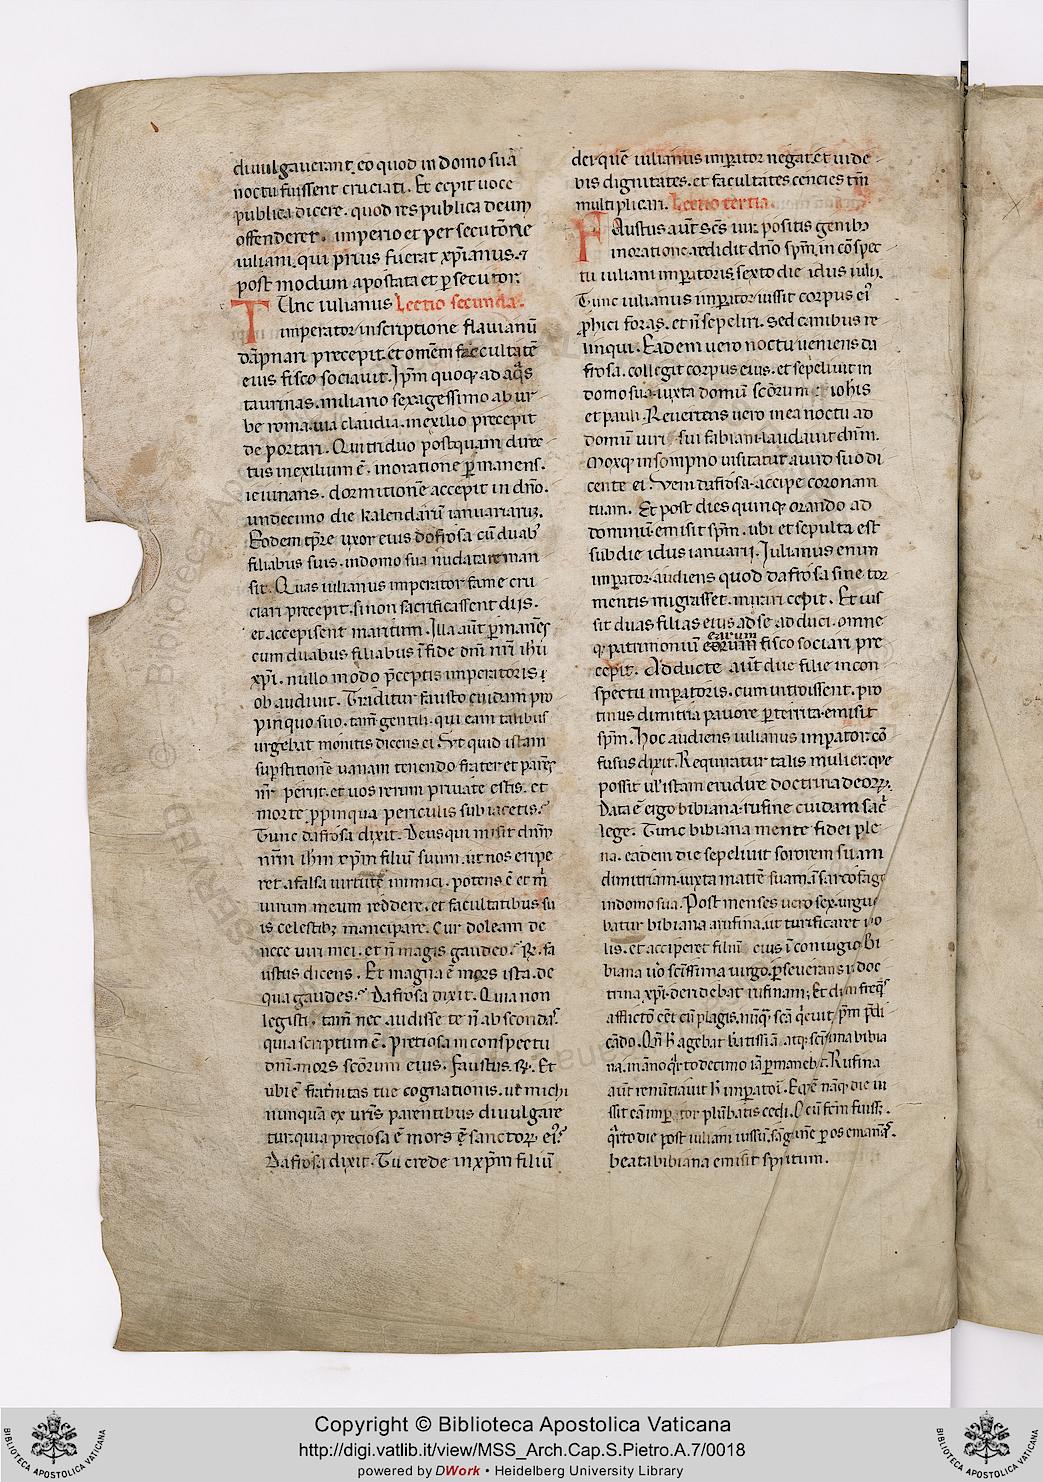 diuulgauerant. eo quod in domo sua
noctu fuissent cruciati. Et cepit uoce
publica dicere. quod res publica deum
offenderet. imperio et persecutōne
iuliani. qui prius fuerat xp̄ianus. ⁊
post modum apostata et ꝑsecutor.
TUnc iulianus Lectio secunda.
imperator inscriptione flauianū
dāpnari precepit. et omēm facultatē
eius fisco sociauit. Ipm̄ quoqꝫ ad aq̄s
taurinas. miliario sexagessimo ab ur
be roma. uia claudia. in exilio precepit
deportari. Qui triduo postquam direc
tus in exilium ē. in oratione ꝑmanens.
ieiunans. dormitionē accepit in dn̄o.
undecimo die kalendarū ianuariarꝝ.
Eodem tp̄re uxor eius dafrosa cū duabꝰ
filiabus suis. in domo sua nudata reman
sit. Quas iulianus imperator fame cru
ciari precepit. si non sacrificassent diis.
et accepisent maritum. Illa aūt ꝑmanēs
cum duabus filiabus ī fide dn̄i nr̄i ihū
xp̄i. nullo modo p̄ceptis imperatoris
obaudiuit. Traditur fausto cuidam pro
pinquo suo. tam̄ gentili. qui eam talibus
urgebat monitis dicens ei. Ut quid istam
suꝑstitionē uanam tenendo frater et parēs
nr̄ periit. et uos rerum priuate estis. et
morte ꝓpinqua periculis subiacetis.
Tunc dafrosa dixit. Deus qui misit dnm̄
nr̄m ihm̄ xp̄m filiū suum. ut nos eripe
ret a falsa uirtute inimici. potens ē et m̄
uirum meum reddere. et facultatibus su
is celestibꝫ mancipare. Cur doleam de
nece uiri mei. et n̄ magis gaudeo. R̄. fa
ustus dicens. Et magna ē mors ista. de
qua gaudes. Dafrosa dixit. Quia non
legisti. tam̄ nec audisse te n̄ abscondas.
quia scriptum ē. Pretiosa in conspectu
dn̄i. mors sc̄orum eius. Faustus R̄. Et
ubi ē frat̄nitas tue cognationis. ut michi
nunquā ex ur̄is parentibus diuulgare
tur. quia preciosa ē mors sanctoꝝ eiꝰ.
Dafrosa dixit. Tu crede in xp̄m filiū
dei quē iulianus imꝑator negat. et uide
bis dignitates. et facultates cencies tm̄
multiplicari. Lectio tertia.
FAustus aūt sc̄s uir positis genibꝫ
in oratione. reddidit dn̄o sp̄m. in cōspec
tu iuliani imꝑatoris. sexto die idus iulii.
Tunc iulianus imꝑator iussit corpus eiꝰ
ꝓhici foras. et n̄ sepeliri. sed canibus re
linqui. Eadem uero noctu ueniens da
frosa. collegit corpus eius. et sepeliuit in
domo sua. iuxta domū sc̄orum iohis
et pauli. Reuertens uero in ea noctu ad
domū uiri sui fabiani. laudauit dnm̄.
Moxqꝫ in sompno uisitatur a uiro suo di
cente ei. Veni dafrosa. accipe coronam
tuam. Et post dies quinqꝫ orando ad
dominū emisit sp̄m. ubi et sepulta est
sub die idus ianuarii. Iulianus enim
imꝑator audiens quod dafrosa sine tor
mentis migrasset. mirari cepit. Et ius
sit duas filias eius ad se adduci. omne
earum
qꝫ patrimoniū eorum fisco sociari pre
cepit. Adducte aūt due filie in con
spectu imꝑatoris. cum introissent. pro
tinus dimitria pauore ꝑterrita. emisit
sp̄m. Hoc audiens iulianus imperator cō
fusus dixit. Requiratur talis mulier. que
possit ul' istam erudire doctrina deoꝝ.
Data ē ergo bibiana. rufine cuidam sac̄
lege. Tunc bibiana mente fidei ple
na. eadem die sepeliuit sororem suam
dimitriam. iuxta matrē suam ī sarcofago
in domo sua. Post menses uero sex. urgue
batur bibiana a rufina. ut turificaret ido
lis. et acciperet filiū eius ī coniugio. Bi
biana uero sc̄issima uirgo. ꝑseuerans ī doc
trina xp̄i. deridebat rufinam. Et dum
afflicto eēt cū plagis.
cādo.
na.
aūt renūtiauit h̄ imꝑatori.
ssit eā imꝑator plūbatis cedi. Q̄ cū fcm̄ fuisꝫ.
q̄rto die post iuliani iussū. sāguinē ꝑ os emanās.
beata bibiana emisit spiritum.
Copyright © Biblioteca Apostolica Vaticana
http://digi.vatlib.it/view/MSS_Arch.Cap.S.Pietro.A.7/0018
powered by DWork • Heidelberg University Library
BIBLIOTECA APOSTOLICA VATICANA
BIBLIOTECA APOSTOLICA VATICANA